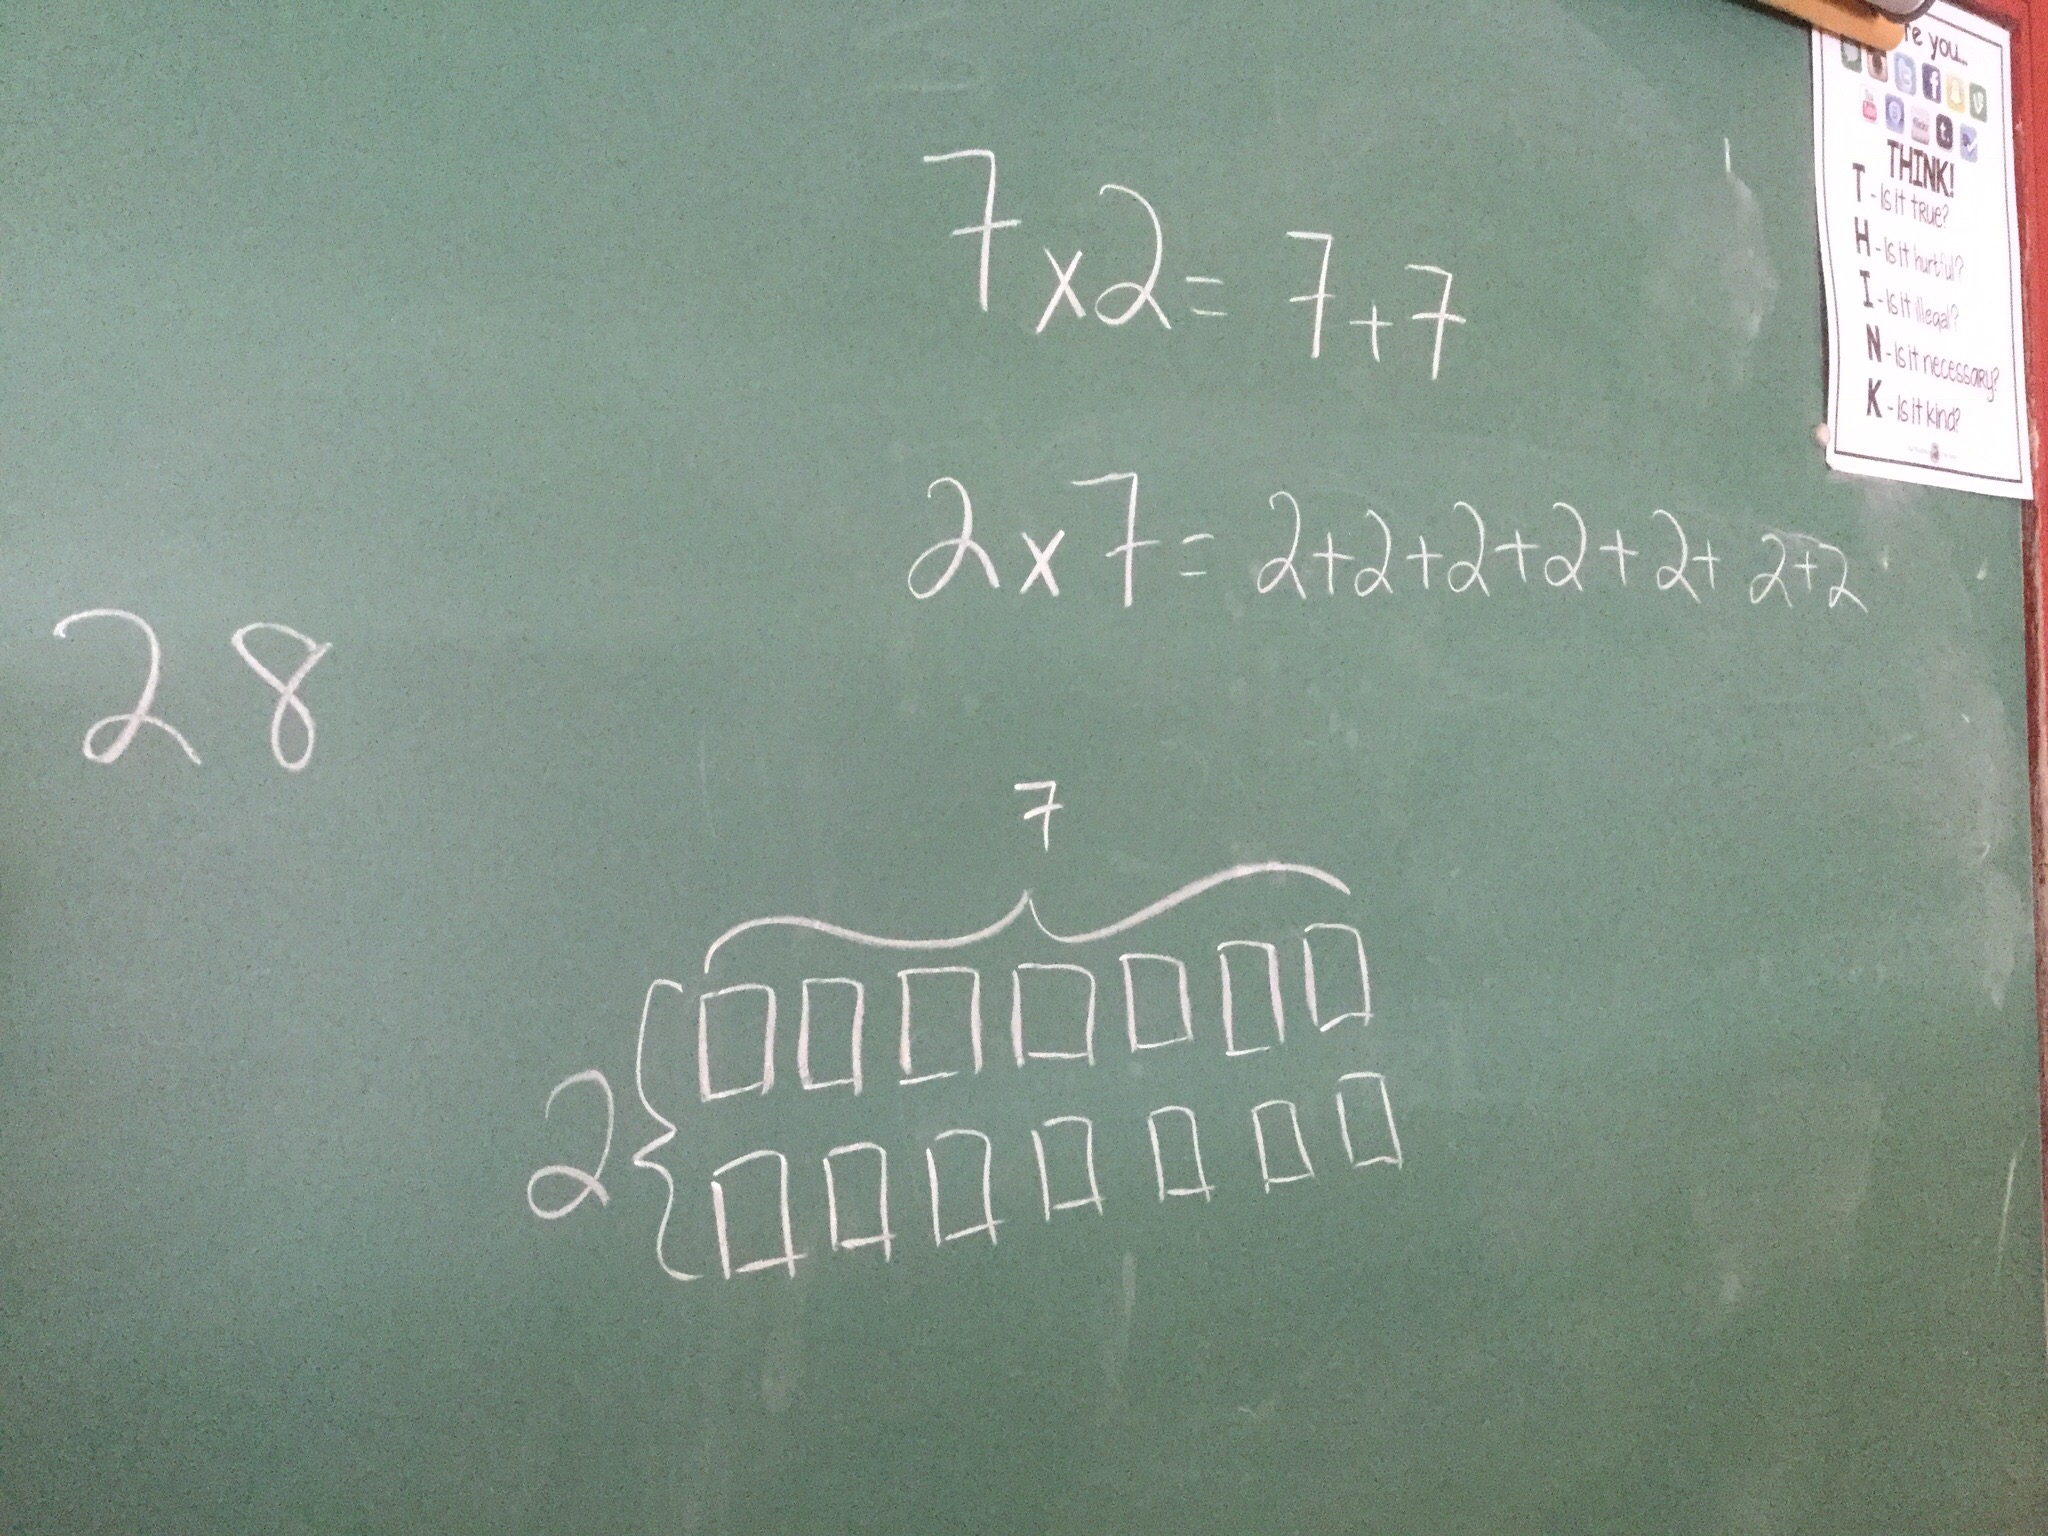 7x2= 7+7
2x7= 2+2+2+2+2+2+2
28
7
2
re you...
THINK!
T - Is it true?
H - Is it hurtful?
I - Is it illegal?
N - Is it necessary?
K - Is it kind?